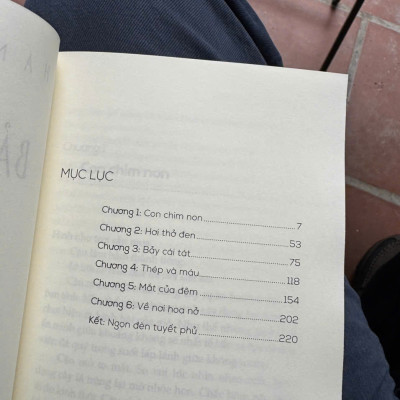 MỤC LỤC
Chương 1: Con chim non 7
Chương 2: Hơi thở đen 53
Chương 3: Bảy cái tát 75
Chương 4: Thép và máu 118
Chương 5: Mắt của đêm 154
Chương 6: Về nơi hoa nở 202
Kết: Ngọn đèn tuyết phủ 220